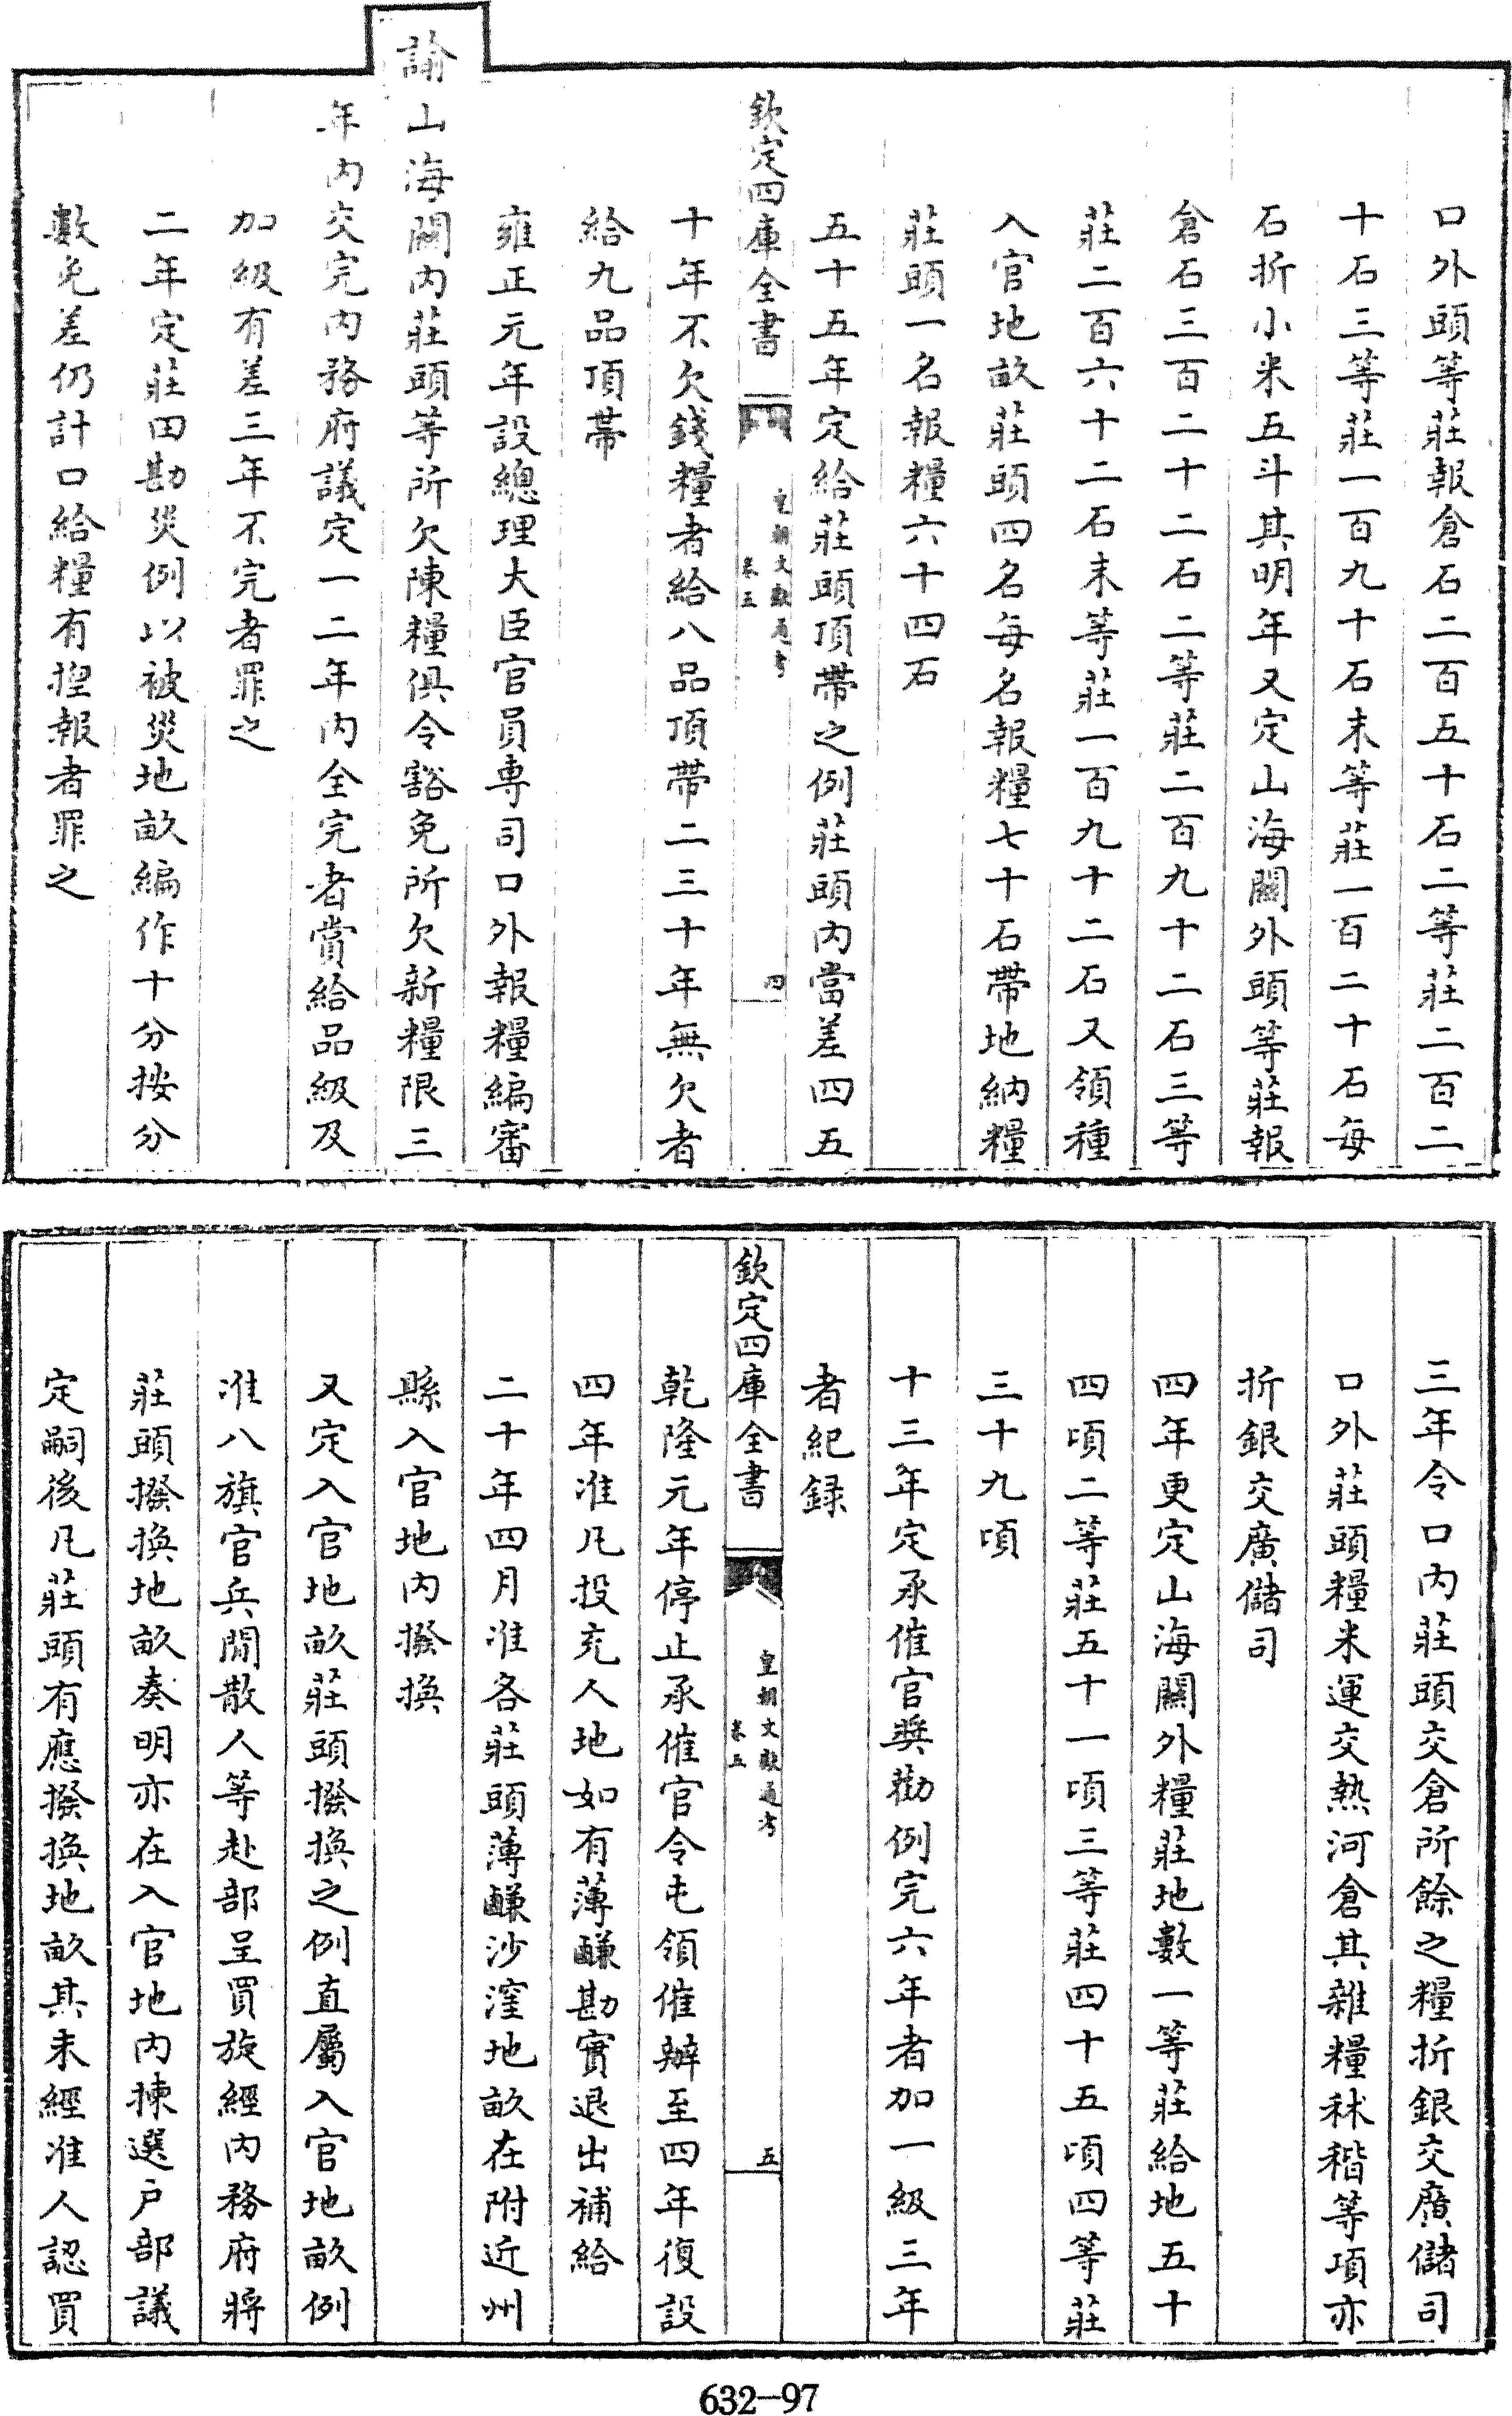 口外頭等莊報倉石二百五十石二等莊二百二
十石三等莊一百九十石末等莊一百二十石每
石折小米五斗其明年又定山海關外頭等莊報
倉石三百二十二石二等莊二百九十二石三等
莊二百六十二石末等莊一百九十二石又領種
入官地畝莊頭四名每名報糧七十石帶地納糧
莊頭一名報糧六十四石
五十五年定給莊頭頂帶之例莊頭內當差四五
欽定四庫全書
皇朝文獻通考
卷五
四
十年不欠錢糧者給八品頂帶二三十年無欠者
給九品頂帶
雍正元年設總理大臣官員専司口外報糧編審
諭山海關內莊頭等所欠陳糧俱令豁免所欠新糧限三
年內交完內務府議定一二年內全完者賞給品級及
加級有差三年不完者罪之
二年定莊田勘災例以被災地畝編作十分按分
數免差仍計口給糧有捏報者罪之
三年令口內莊頭交倉所餘之糧折銀交廣儲司
口外莊頭糧米運交熱河倉其雜糧秫稭等項亦
折銀交廣儲司
四年更定山海關外糧莊地數一等莊給地五十
四頃二等莊五十一頃三等莊四十五頃四等莊
三十九頃
十三年定承催官奬勸例完六年者加一級三年
者紀録
欽定四庫全書
皇朝文獻通考
卷五
五
乾隆元年停止承催官令屯領催辦至四年復設
四年准凡投充人地如有薄鹻勘實退出補給
二十年四月准各莊頭薄鹻沙漥地畝在附近州
縣入官地內撥換
又定入官地畝莊頭撥換之例直屬入官地畝例
准八旗官兵閒散人等赴部呈買旋經內務府將
莊頭撥換地畝奏明亦在入官地內揀選户部議
定嗣後凡莊頭有應撥換地畝其未經准人認買
632-97